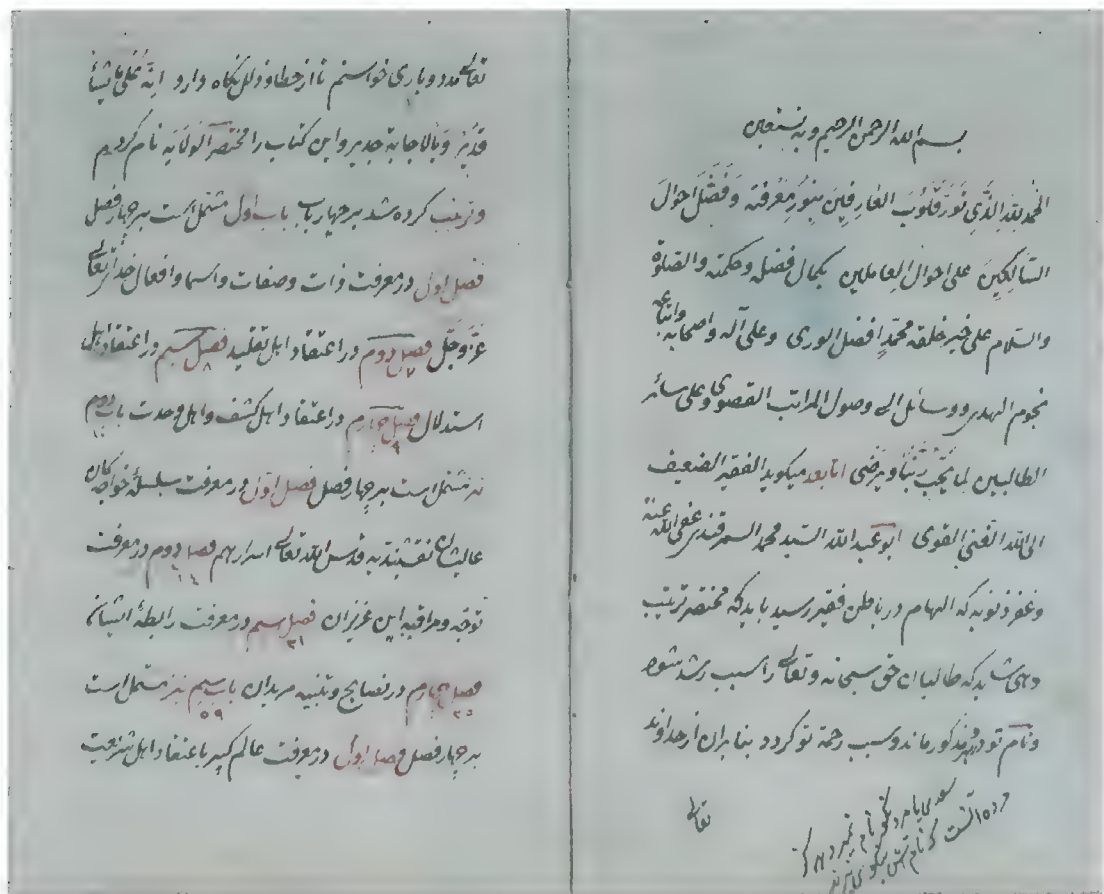 بسم الله الرحمن الرحیم وبه نستعین
الْحَمْدُ لِلّهِ الَّذِي نَوَّرَ قُلُوبَ العَارِفِينَ بِنُورِ مَعْرِفَتِهِ وَفَضَّلَ احوالَ
السَّالِكِينَ علی احوال العاملین بکمال فضله وحکمته والصَّلوٰة
والسّلام علی خیر خلقه محمّدٍ افضل الوری وعلی آله واصحابه واتباعه
نجوم الهدی ووسائل الی وصول المراتب القصوی وعلی سائر
الطالبین لما یُحِبّ ربُّنا ویرضی امّا بعد میکوید الفقیر الضعیف
الی الله الغنی القوی ابو عبد الله السّید محمد السمرقندی عفی الله عنه
وغفر ذنوبه که الهام در باطن فقیر رسید باید که مختصر ترتیب
دهی شاید که طالبان حق سبحانه وتعالی را سبب رشد شود
ونام تو در دهر مذکور ماند وسبب رحمة تو کردد بنا بران از خداوند
تعالی
سعدیا مرد نکو نام نمیرد هرکز
مرده آنست که نامش بنکویی نبرند
تعالی مدد ویاری خواستم تا از خطا وزلل نکاه دارد اِنَّهُ عَلیٰ مَا یَشَآءُ
قَدِیْرٌ وَبِالاجابة جدیر واین کتاب را مختصر الولایه نام کردیم
وترتیب کرده شد بر چهار باب باب اول مشتمل است بر چهار فصل
فصل اول در معرفت ذات وصفات واسما وافعال خدای تعالی
عزّ وجلّ فصل دوم در اعتقاد اهل تقلید فصل سیم در اعتقاد اهل
استدلال فصل چهارم در اعتقاد اهل کشف واهل وحدت باب دوم
نیز مشتمل است بر چهار فصل فصل اول در معرفت سلسلهٔ خواجکان
عالیشان نقشبندیه قدس الله تعالی اسرارهم فصل دوم در معرفت
توجه ومراقبه این عزیزان فصل سیم در معرفت رابطهٔ ایشان
فصل چهارم در نصایح وتنبیه مریدان باب سیم نیز مشتمل است
بر چهار فصل فصل اول در معرفت عالم کبیر باعتقاد اهل شریعت